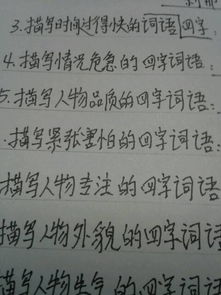 3.描写时间过得快的词语四字:
4.描写情况危急的四字词语:
5.描写人物品质的四字词语:
描写紧张害怕的四字词语:
描写人物专注的四字词语
描写人物外貌的四字词语
描写人物生气的四字词语